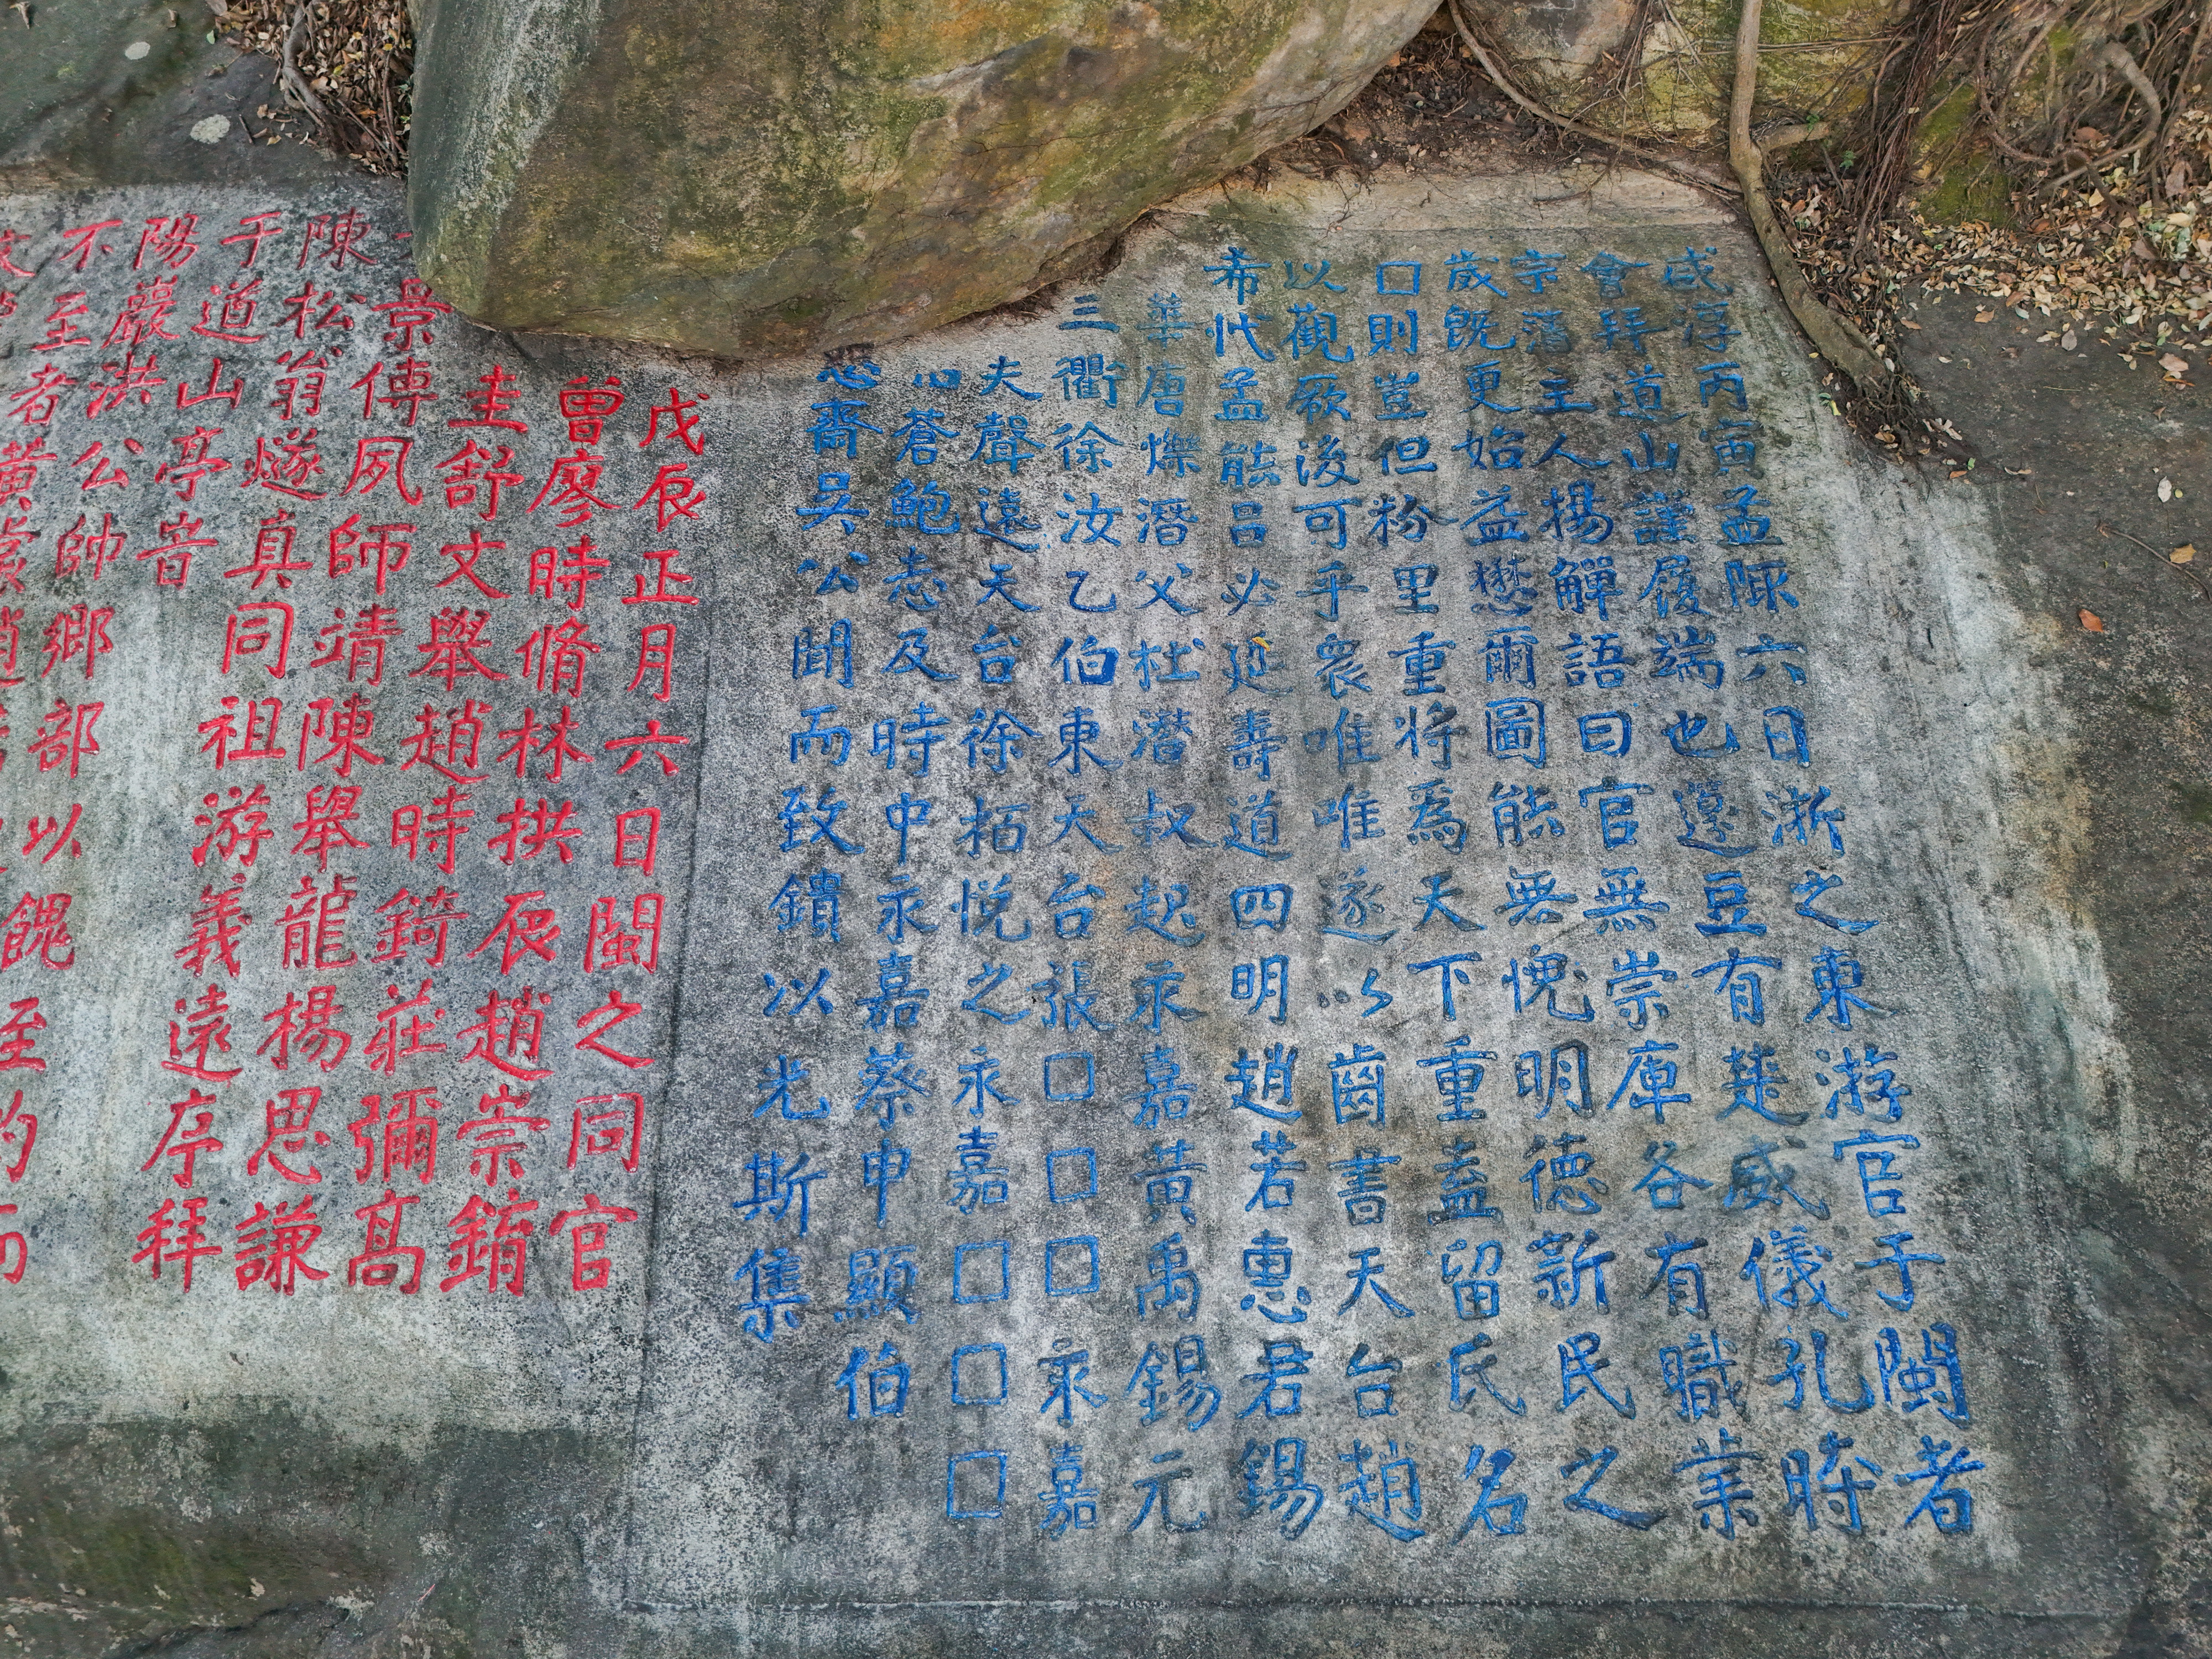 咸淳丙寅孟陬六日浙之東游官于閩者
會拜道山謹履端也籩豆有楚威儀孔時
宗藩主人揚觶語曰官無崇庳各有職業
歲既更始益懋爾圖能無愧明德新民之
□則豈但粉里重將為天下重盍留氏名
以觀厥後可乎衆唯唯遂以齒書天台趙
希代孟能呂必延壽道四明趙若惠君錫
華唐爍潛父杜濳叔起永嘉黃禹錫元
三衢徐汝乙伯東天台張□□□永嘉
夫聲遠天台徐栢悅之永嘉□□□
蒼鮑志及時中永嘉蔡申顯伯
齋吳公聞而致鎖以光斯集
戊辰正月六日閩之同官
曾廖時脩林拱辰趙崇錥
圭舒文舉趙時錡莊彌髙
景傳夙師靖陳舉龍楊思謙
陳松翁燧真同祖游義遠序拜
于道山亭音
陽巖洪公帥鄉部以餽至
不至者黃裳趙